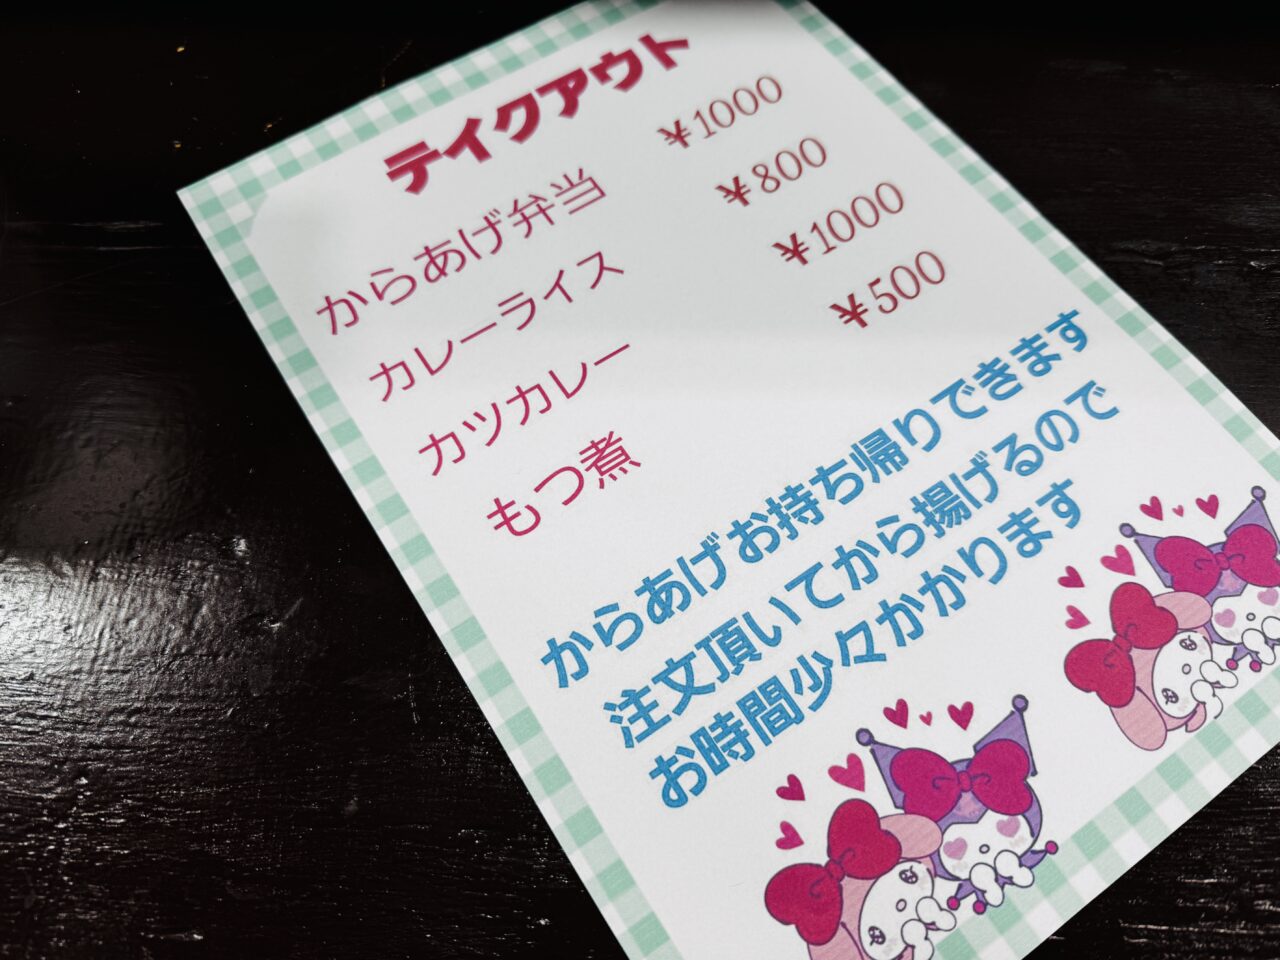 テイクアウト
からあげ弁当 ¥1000
カレーライス ¥800
カツカレー ¥1000
もつ煮 ¥500
からあげお持ち帰りできます
注文頂いてから揚げるので
お時間少々かかります